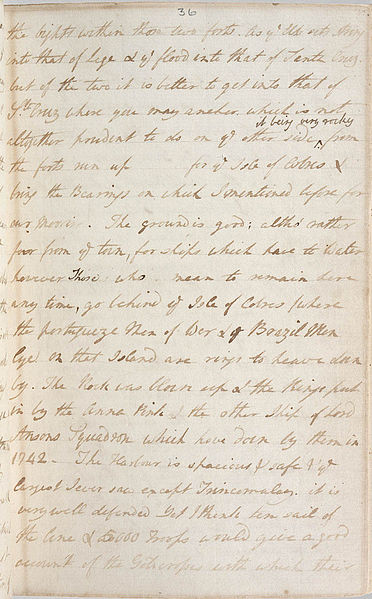 36
the bights within those two forts. As ye Ebb sets strong
into that of Lage & ye flood into that of Santa Cruz
but of the two it is better to get into that of
Sta Cruz where you may anchor. which is not
altogether prudent to do on ye other side it being very rocky from
the forts run up for ye Isle of Cobres &
bring the Bearings on which I mentioned before for
our Moorin. The ground is good; altho' rather
foor from ye town, for ships which have to Water
however Those who mean to remain here
any time, go behind ye Isle of Cobres (where
the portugueze Men of War & ye Brazil Men
lye) on that Island are rings to heave down
by. The Rock was blown up & the Rings put
in by the Anna Pink & the other Ship of Lord
Ansons Squadron which hove down by them in
1742 – The Harbour is spacious & safe & ye
largest I ever saw except Trincomalay. it is
very well defended yet I think ten sail of
the line & 5000 Troops would give a good
account of the with which their